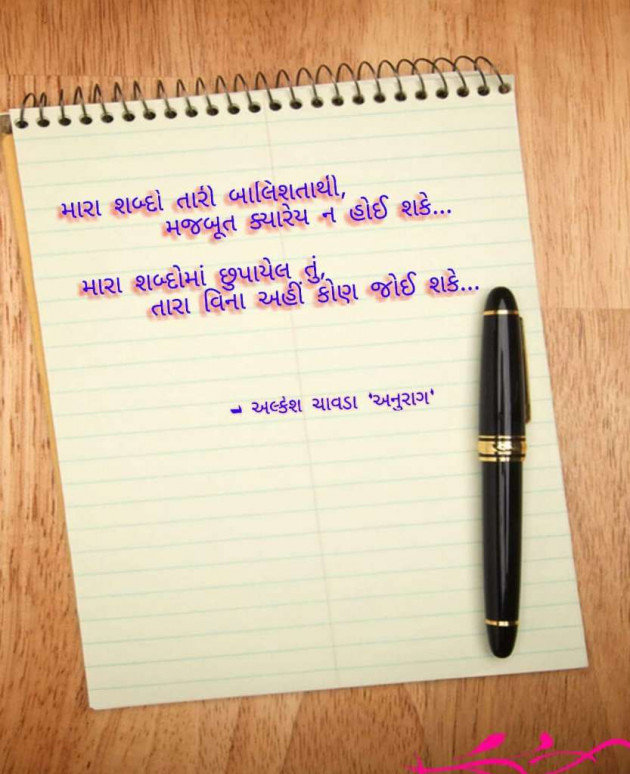 મારા શબ્દો તારી બાલિશતાથી,
મજબૂત ક્યારેય ન હોઈ શકે...
મારા શબ્દોમાં છુપાયેલ તું,
તારા વિના અહીં કોણ જોઈ શકે...
- અલ્કેશ ચાવડા 'અનુરાગ'